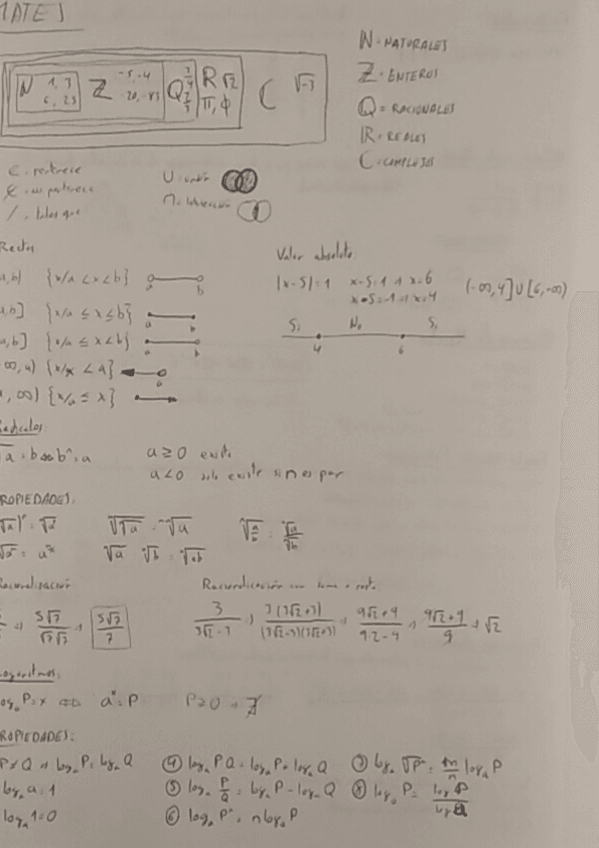 MATES
N 1, 3 6, 23 Z -5, -4 -20, Q R √2 π, ϕ C √-3
N = NATURALES
Z = ENTEROS
Q = RACIONALES
R = REALES
C = COMPLEJOS
∈ = pertenece
∉ = no pertenece
/ = tales que
U = unión
∩ =
Rectas
a,b) {x/a < x < b} a b
a,b] {x/a ≤ x ≤ b} a b
a,b] {x/a ≤ x < b} a b
∞, a) {x/x < a} a
a, ∞) {x/a ≤ x}
Valor absoluto:
|x-5|=1 x-5=1 x=6
x-5=-1 x=4
(-∞,4]U[6,-∞)
Si No Si
4 6
Radicales:
√a = b ⇔ bⁿ = a
a ≥ 0 existe
a < 0 solo existe si n es par
PROPIEDADES:
ⁿ√a ⁿ√b = ⁿ√ab
Racionalización
5√7/√7√7 = 5√7/7
Racionalización con suma o resta
3/(3√2-3) = 3(3√2+3)/((3√2-3)(3√2+3)) = (9√2+9)/(9·2-9) = (9√2+9)/9 = √2
Logaritmos:
logₐ P = x ⇔ aˣ = P P>0
PROPIEDADES:
P = Q ⇒ logₐ P = logₐ Q
logₐ a = 1
logₐ 1 = 0
④ logₐ PQ = logₐ P + logₐ Q
⑤ logₐ P/Q = logₐ P - logₐ Q
⑥ logₐ Pⁿ = n logₐ P
⑦ logₐ ⁿ√Pᵐ = m/n logₐ P
⑧ logₐ P = log P/log a